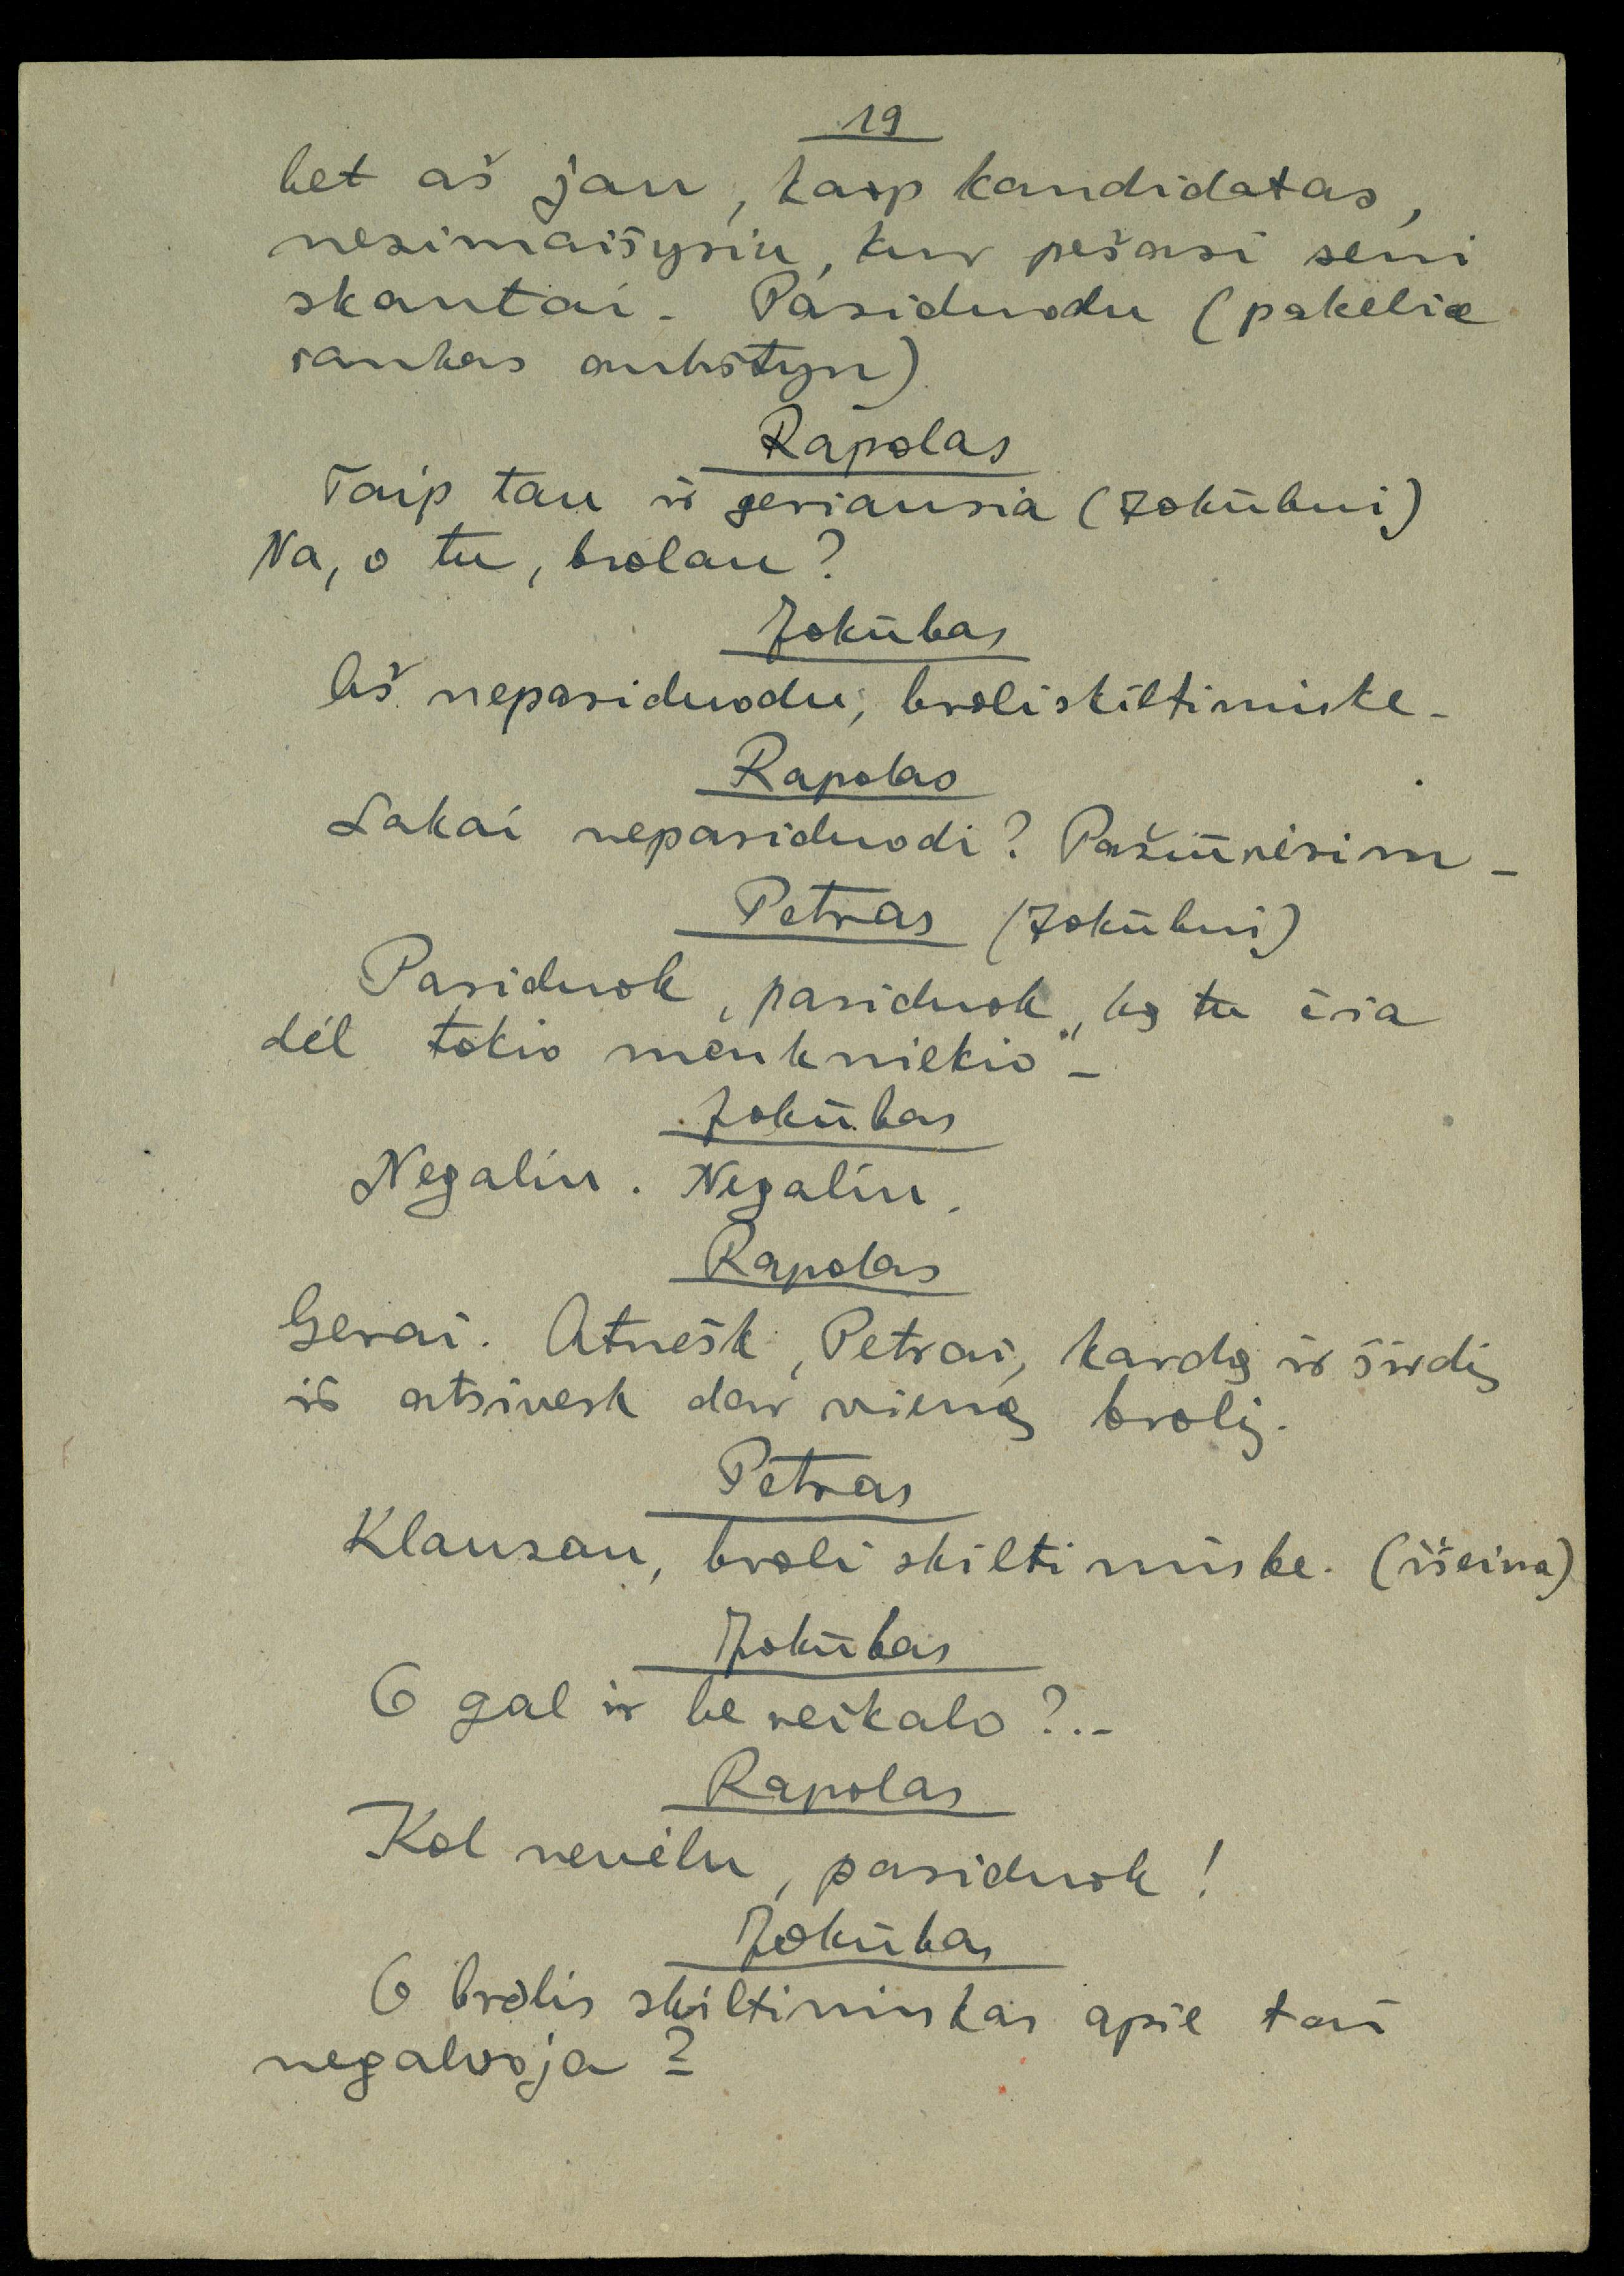 19
bet aš jau, kaip kandidatas,
nesimaišysiu, kur pešasi seni
skautai. Pasiduodu (pakelia
rankas aukštyn)
Rapolas
Taip tau ir geriausia (Jokūbui)
Na, o tu, brolau?
Jokūbas
Aš nepasiduodu, broli skiltininke.
Rapolas
Sakai nepasiduodi? Pažiūrėsim.
Petras (Jokūbui)
Pasiduok, pasiduok, ką tu čia
dėl tokio menkniekio.
Jokūbas
Negaliu. Negaliu.
Rapolas
Gerai. Atnešk, Petrai, kardą ir širdį
ir atsivesk dar vieną brolį.
Petras
Klausau, broli skiltininke. (išeina)
Jokūbas
O gal ir be reikalo?..
Rapolas
Kol nevėlu, pasiduok!
Jokūbas
O brolis skiltininkas apie tai
negalvoja?